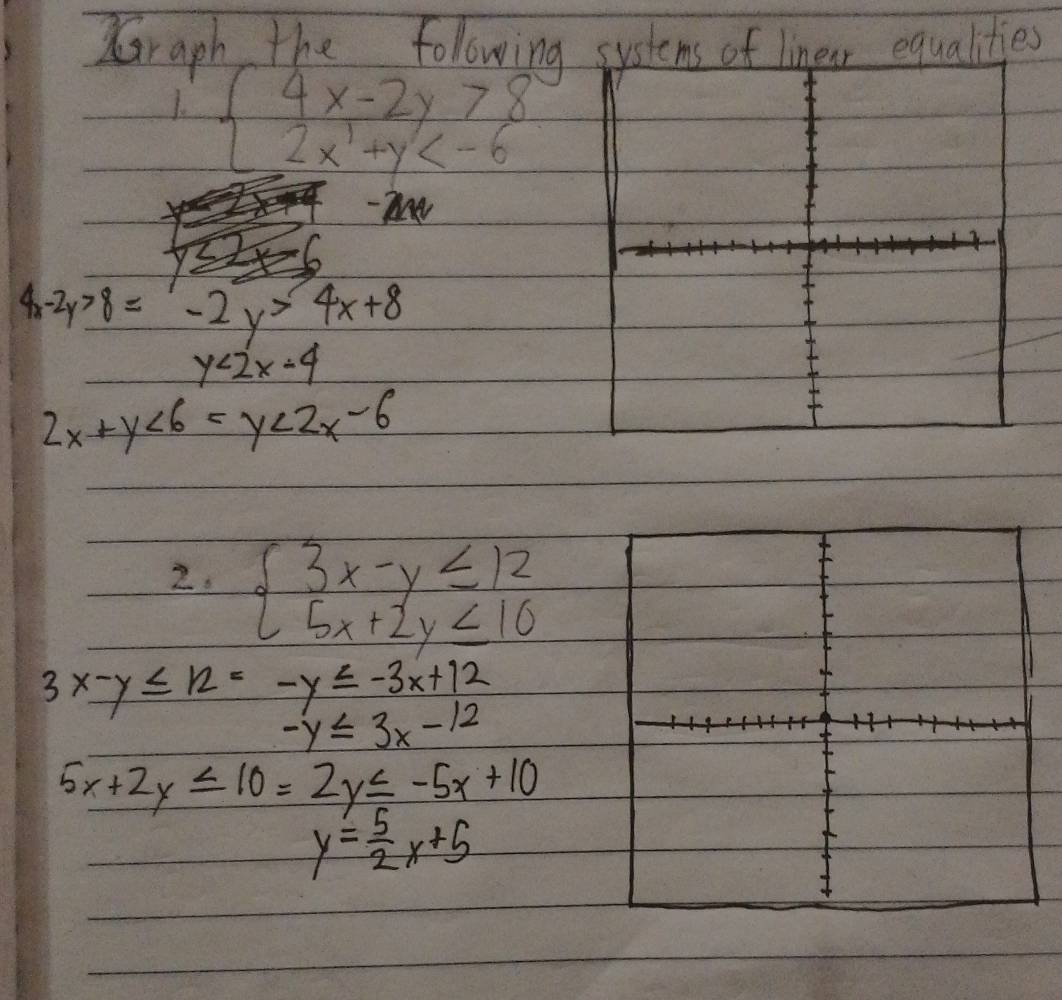 Graph the following systems of linear equalities
1. { 4x-2y > 8
2x+y < -6
y<2x-6
4x-2y>8 = -2y > 4x+8
y<2x-4
2x+y<6 = y<2x-6
2. { 3x-y ≤ 12
5x+2y ≤ 10
3x-y ≤ 12 = -y ≤ -3x+12
-y ≤ 3x-12
5x+2y ≤ 10 = 2y ≤ -5x+10
y = 5/2 x+5